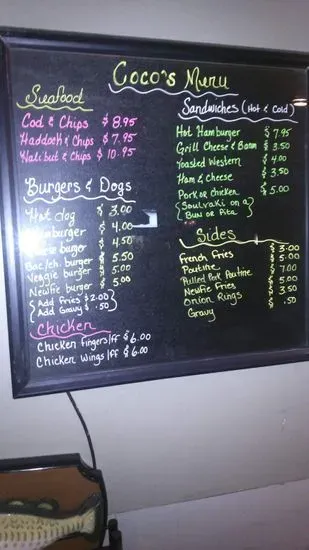 Coco's Menu
Seafood
Cod & Chips $ 8.95
Haddock & Chips $ 7.95
Halibut & Chips $ 10.95
Burgers & Dogs
Hot dog $ 3.00
Hamburger $ 4.00
burger $ 4.50
burger $ 5.50
Veggie burger $ 5.00
Newfie burger $ 5.00
{Add Fries $2.00}
{Add Gravy $ .50}
Chicken
Chicken fingers/ff $ 6.00
Chicken wings/ff $ 6.00
Sandwiches (Hot & Cold)
Hot Hamburger $ 7.95
Grill Cheese & Bacon $ 3.50
Toasted Western $ 4.00
Ham & Cheese $ 3.50
Pork or Chicken $ 5.00
{Souvlaki on a}
{Bun or Pita}
Sides
French Fries $ 3.00
Poutine $ 5.00
Pulled Pork Poutine $ 7.00
Newfie Fries $ 5.00
Onion Rings $ 3.50
Gravy $ .50